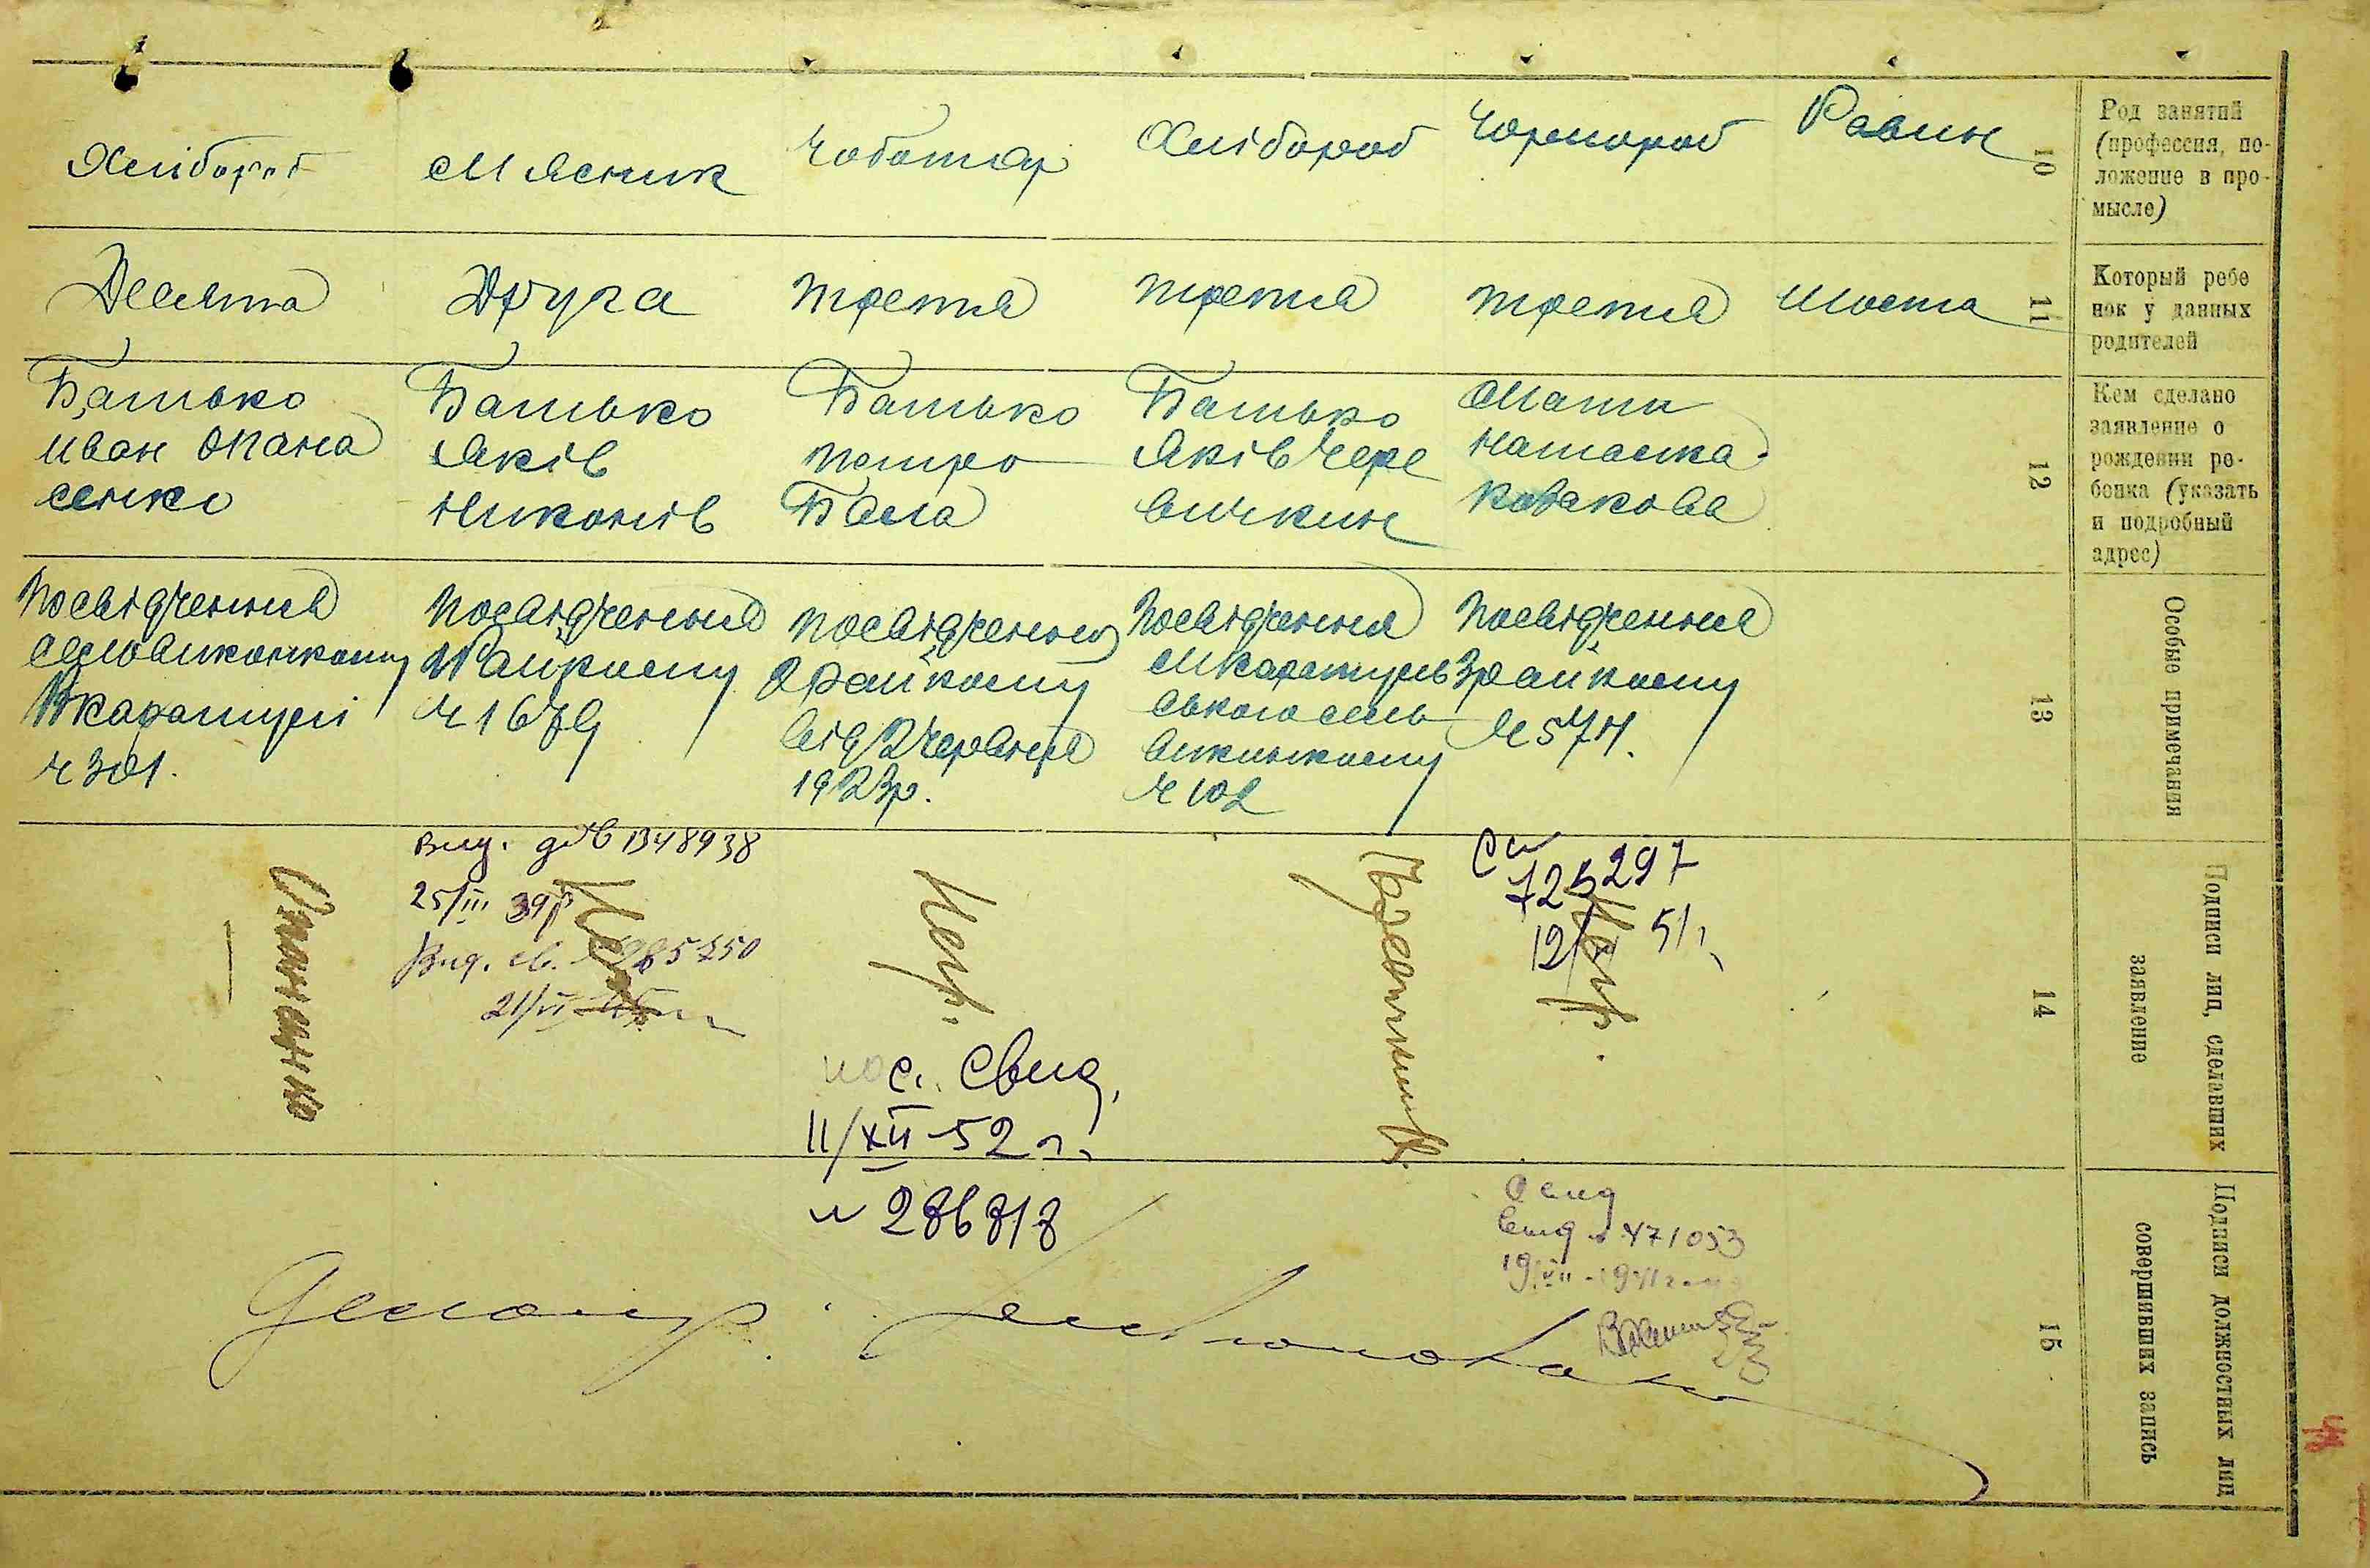 Хлібороб
М'ясник
Чоботар
Хлібороб
Чорнороб
Равин
10
Род занятий
(профессия, по-
ложение в про-
мысле)
Десята
Друга
третя
третя
третя
шоста
11
Который ребе
нок у данных
родителей
Батько
Иван Опана
сенко
Батько
Яків
Никонів
Батько
петро
Бала
Батько
Яків Чере
вичкин
Мати
Наталка
Козакова
12
Кем сделано
заявление о
рождении ре-
бенка (указать
и подробный
адрес)
Посвідчення
сельвиконкому
Мкаратулі
ч 301.
Посвідчення
Райкому
ч 1679
посвідчення
2 райкому
від 2 червня
1923р.
Посвідчення
Мкаратуль
ського сель
виконкому
ч 102
Посвідчення
3 райкому
№ 574.
13
Особые примечания
Вид. 1348938
25/III 39р
Вид. св. 285250
21/VI
Опанасенко
Негр.
Негр.
пос. Свид,
11/XII-52 г.
Негр.
725297
12/ 51г
14
Подписи лиц, сделавших
заявление
№ 286818
свид 471053
19/VII
15
Подписи должностных лиц
совершивших запись